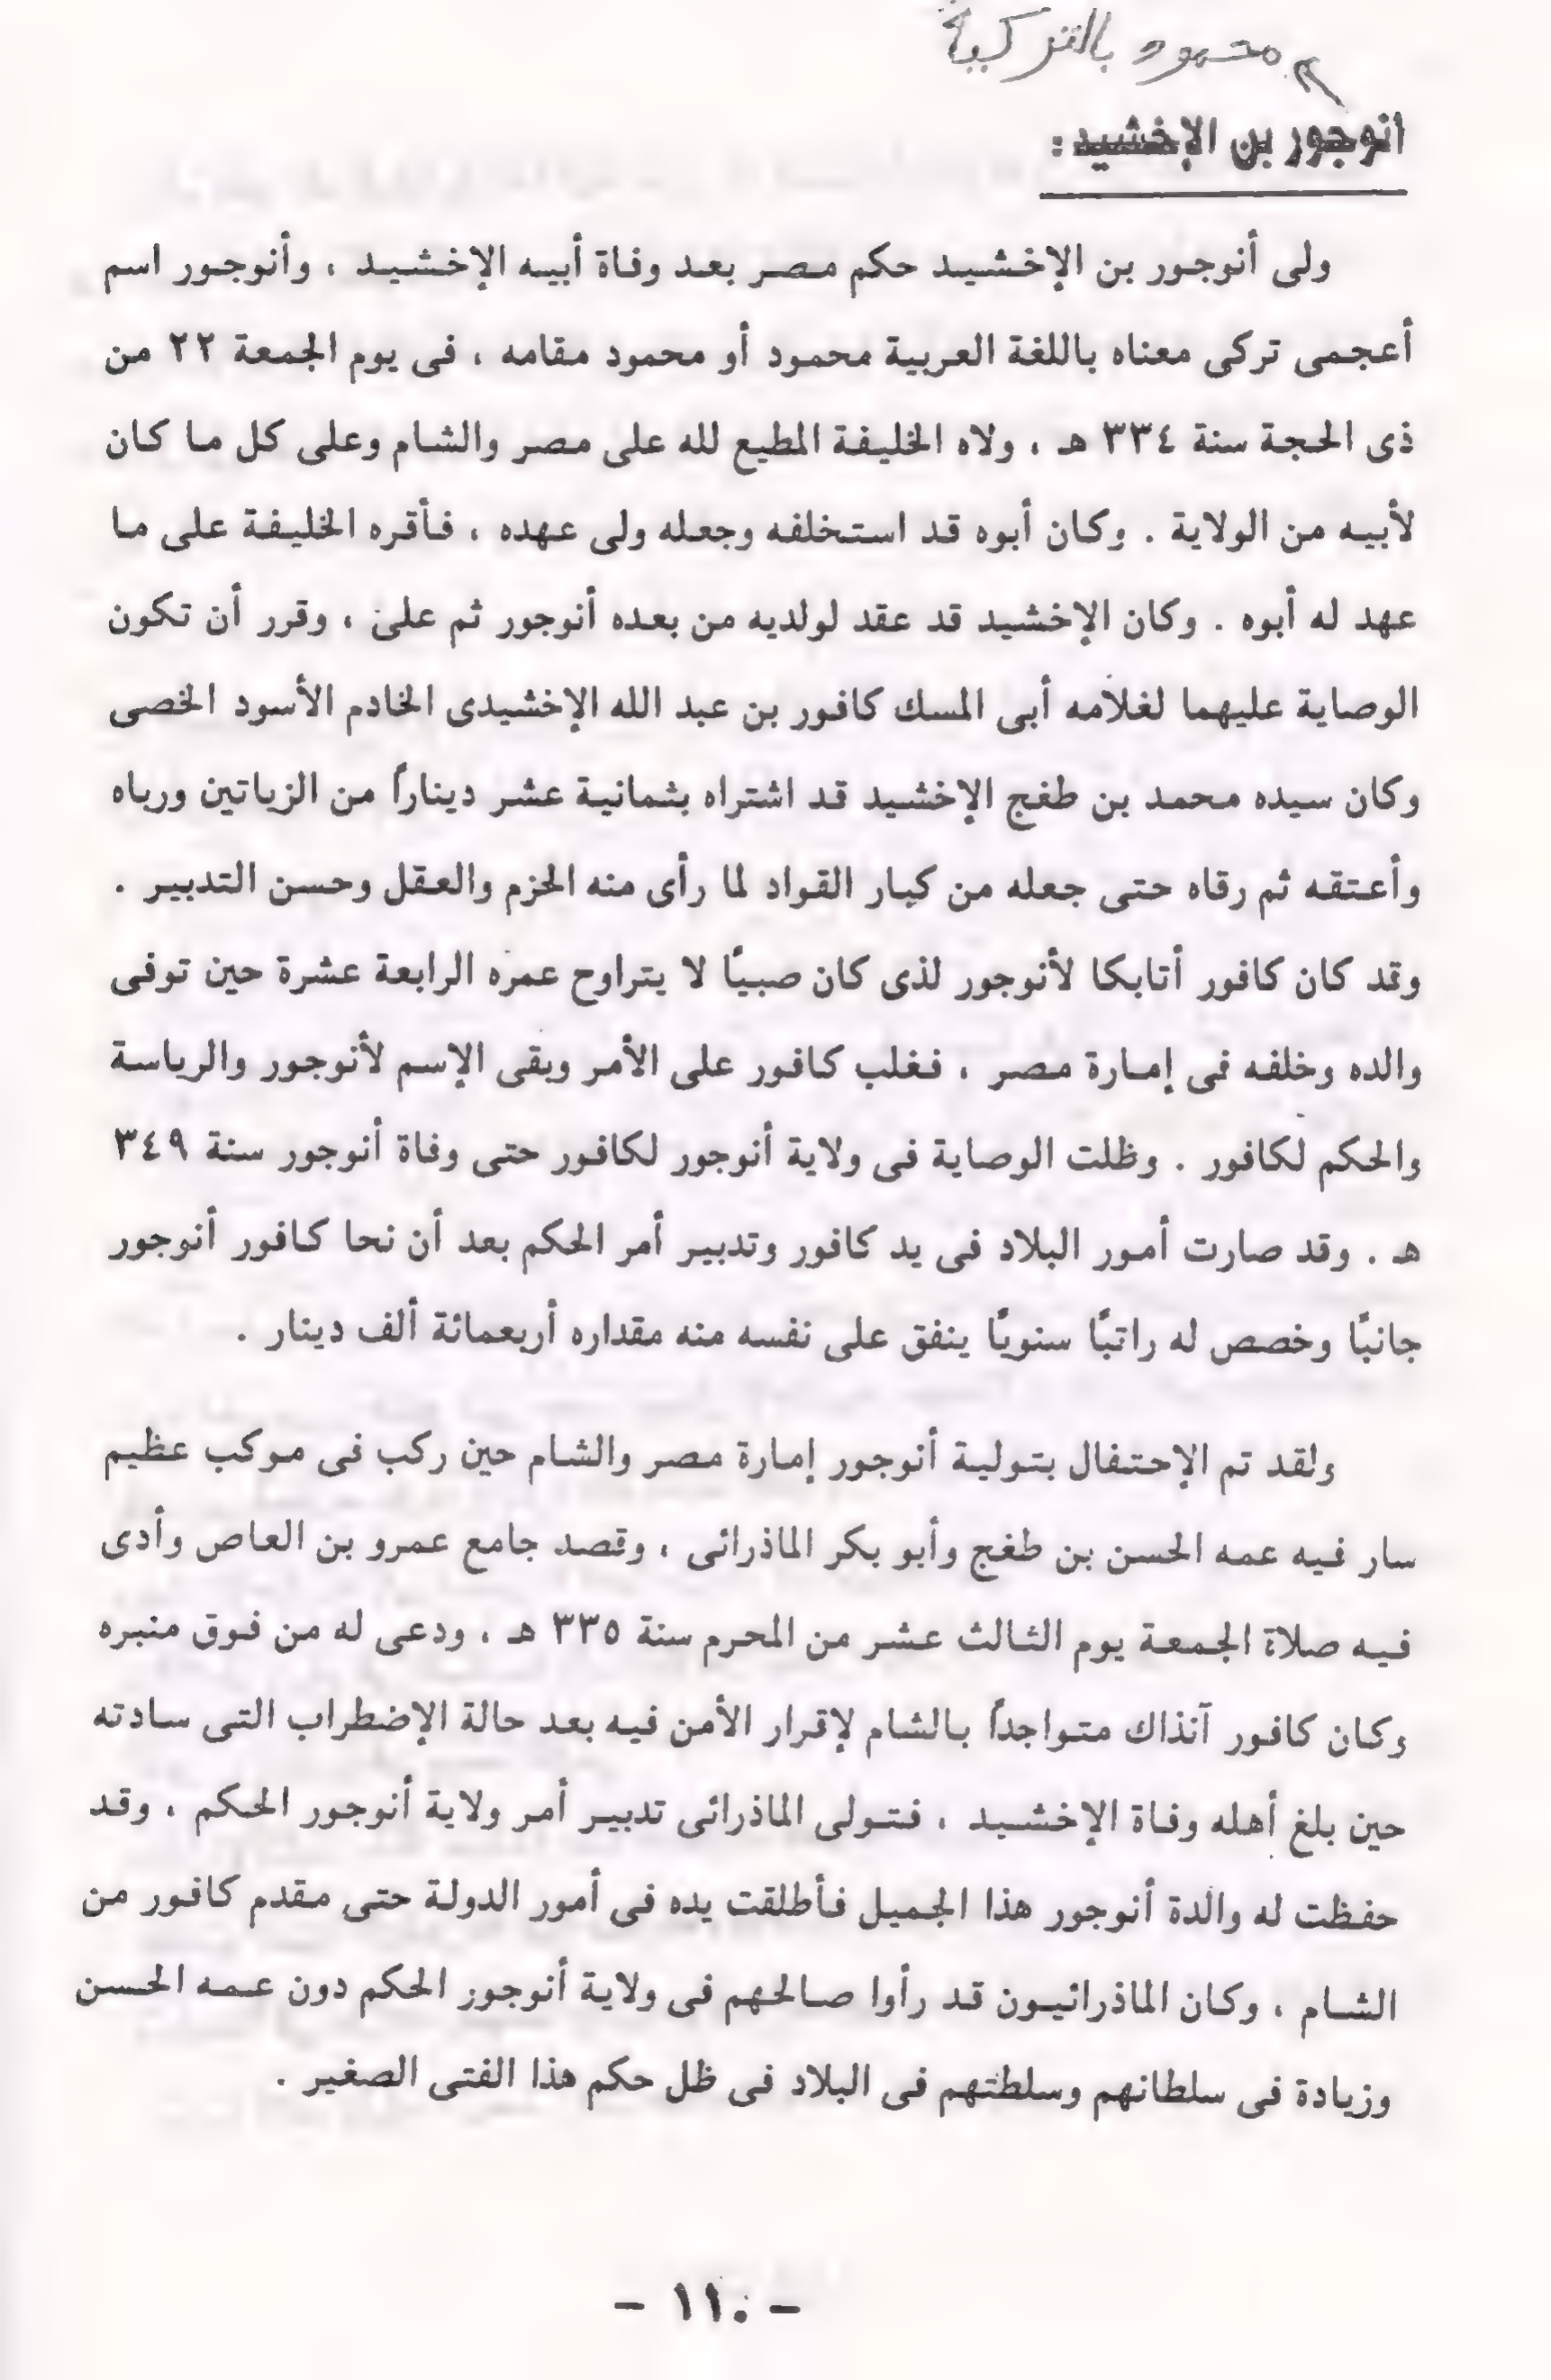 محمود بالتركية
انوجور بن الإخشيد :
ولى أنوجور بن الإخشيد حكم مصر بعد وفاة أبيه الإخشيد ، وأنوجور اسم
أعجمى تركى معناه باللغة العربية محمود أو محمود مقامه ، فى يوم الجمعة ٢٢ من
ذى الحجة سنة ٣٣٤ هـ ، ولاه الخليفة المطيع لله على مصر والشام وعلى كل ما كان
لأبيه من الولاية . وكان أبوه قد استخلفه وجعله ولى عهده ، فأقره الخليفة على ما
عهد له أبوه . وكان الإخشيد قد عقد لولديه من بعده أنوجور ثم على ، وقرر أن تكون
الوصاية عليهما لغلامه أبى المسك كافور بن عبد الله الإخشيدى الخادم الأسود الخصى
وكان سيده محمد بن طغج الإخشيد قد اشتراه بثمانية عشر ديناراً من الزياتين ورباه
وأعتقه ثم رقاه حتى جعله من كبار القواد لما رأى منه الحزم والعقل وحسن التدبير .
وقد كان كافور أتابكا لأنوجور لذى كان صبيًا لا يتراوح عمره الرابعة عشرة حين توفى
والده وخلفه فى إمارة مصر ، فغلب كافور على الأمر وبقى الإسم لأنوجور والرياسة
والحكم لكافور . وظلت الوصاية فى ولاية أنوجور لكافور حتى وفاة أنوجور سنة ٣٤٩
هـ . وقد صارت أمور البلاد فى يد كافور وتدبير أمر الحكم بعد أن نحا كافور أنوجور
جانبًا وخصص له راتبًا سنويًا ينفق على نفسه منه مقداره أربعمائة ألف دينار .
ولقد تم الإحتفال بتولية أنوجور إمارة مصر والشام حين ركب فى موكب عظيم
سار فيه عمه الحسن بن طغج وأبو بكر الماذرائى ، وقصد جامع عمرو بن العاص وأدى
فيه صلاة الجمعة يوم الثالث عشر من المحرم سنة ٣٣٥ هـ ، ودعى له من فوق منبره
وكان كافور آنذاك متواجداً بالشام لإقرار الأمن فيه بعد حالة الإضطراب التى سادته
حين بلغ أهله وفاة الإخشيد ، فتولى الماذرائى تدبير أمر ولاية أنوجور الحكم ، وقد
حفظت له والدة أنوجور هذا الجميل فأطلقت يده فى أمور الدولة حتى مقدم كافور من
الشام ، وكان الماذرائيون قد رأوا صالحهم فى ولاية أنوجور الحكم دون عمه الحسن
وزيادة فى سلطانهم وسلطتهم فى البلاد فى ظل حكم هذا الفتى الصغير .
– ١١٠ –